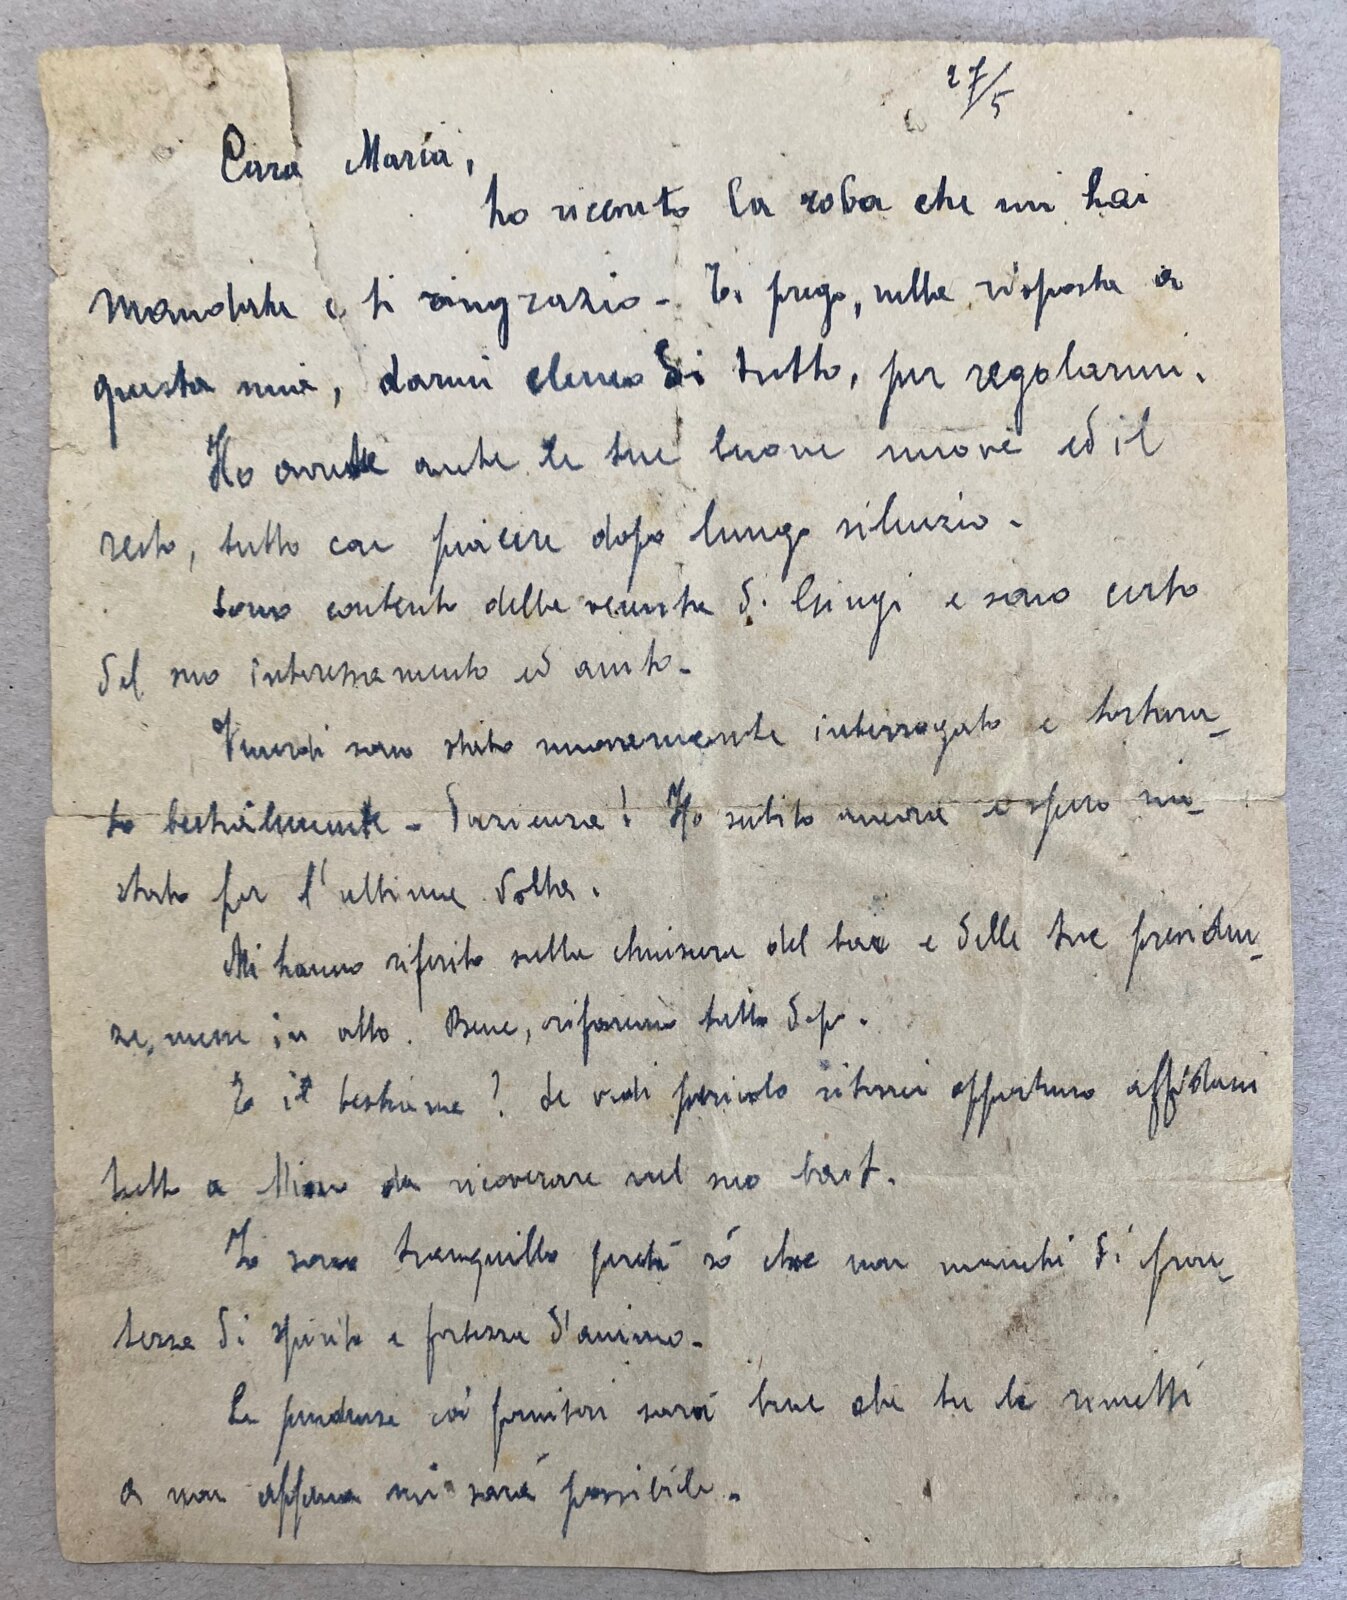 27/5
Cara Maria,
ho ricevuto la roba che mi hai
mandata e ti ringrazio - Ti prego, nella risposta a
questa mia, darmi elenco di tutto, per regolarmi.
Ho avute anche le tue buone nuove ed il
resto, tutto con piacere dopo lungo silenzio.
Sono contento della venuta di e sono certo
del suo interessamento ed aiuto -
Venerdì sono stato nuovamente interrogato e tortura-
to bestialmente - Pazienza! Ho subito ancora e spero sia
stato per l'ultima volta.
Mi hanno riferito sulla chiusura del bar e delle tue
messe in atto. Bene, rifaremo tutto dopo.
E il bestiame? Se vedi pericolo riterrei opportuno affidarci
tutto a da ricoverare nel suo
Io sono tranquillo perché só che non manchi di pron-
tezza di spirito e fortezza d'animo -
Le pendenze coi fornitori sarà bene che tu le rimetti
a non appena mi sarà possibile -